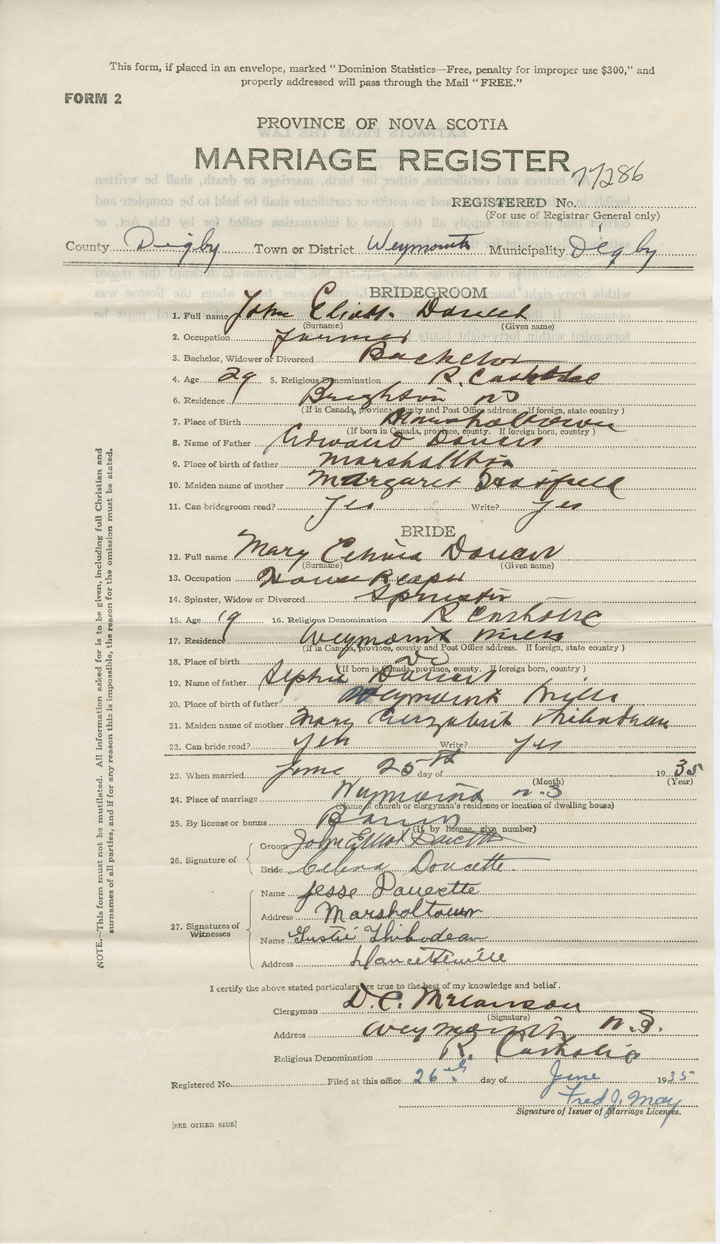 This form, if placed in an envelope, marked " Dominion Statistics—Free, penalty for improper use $300," and
properly addressed will pass through the Mail " FREE."
FORM 2
PROVINCE OF NOVA SCOTIA
MARRIAGE REGISTER
77286
REGISTERED No.
(For use of Registrar General only)
County Digby Town or District Weymouth Municipality Digby
BRIDEGROOM
1. Full name John Doucet
(Surname) (Given name)
2. Occupation farmer
3. Bachelor, Widower or Divorced Bachelor
4. Age 29 5. Religious Denomination R. Catholic
6. Residence Brighton NS
(If in Canada, province, county and Post Office address. If foreign, state country )
7. Place of Birth Marshaltown
(If born in Canada, province, county. If foreign born, country )
8. Name of Father Edward Doucet
9. Place of birth of father Marshaltown
10. Maiden name of mother Margaret
11. Can bridegroom read? Yes Write? Yes
BRIDE
12. Full name Mary Doucet
(Surname) (Given name)
13. Occupation House Keeper
14. Spinster, Widow or Divorced Spinster
15. Age 19 16. Religious Denomination R Catholic
17. Residence Weymouth Mills
(If in Canada, province, county and Post Office address. If foreign, state country )
18. Place of birth
(If born in Canada, province, county. If foreign born, country )
19. Name of father Doucet
20. Place of birth of father Weymouth Mills
21. Maiden name of mother Mary Elizabeth Thibodeau
22. Can bride read? Yes Write? Yes
23. When married June 25th day of 1935
(Month) (Year)
24. Place of marriage Weymouth N.S
(Name of church or clergyman's residence or location of dwelling house)
25. By license or banns Banns
(If by license, give number)
26. Signature of
Groom John Elliot Doucette
Bride Celina Doucette
27. Signatures of Witnesses
Name Jesse Doucette
Address Marshaltown
Name Gustie Thibodeau
Address Doucetteville
I certify the above stated particulars are true to the best of my knowledge and belief.
Clergyman D.C. Melanson
(Signature)
Address Weymouth N.S.
Religious Denomination R. Catholic
Registered No. Filed at this office 26th day of June 1935
Fred J. May
Signature of Issuer of Marriage Licenses.
[SEE OTHER SIDE]
NOTE.—This form must not be mutilated. All information asked for is to be given, including full Christian and
surnames of all parties, and if for any reason this is impossible, the reason for the omission must be stated.